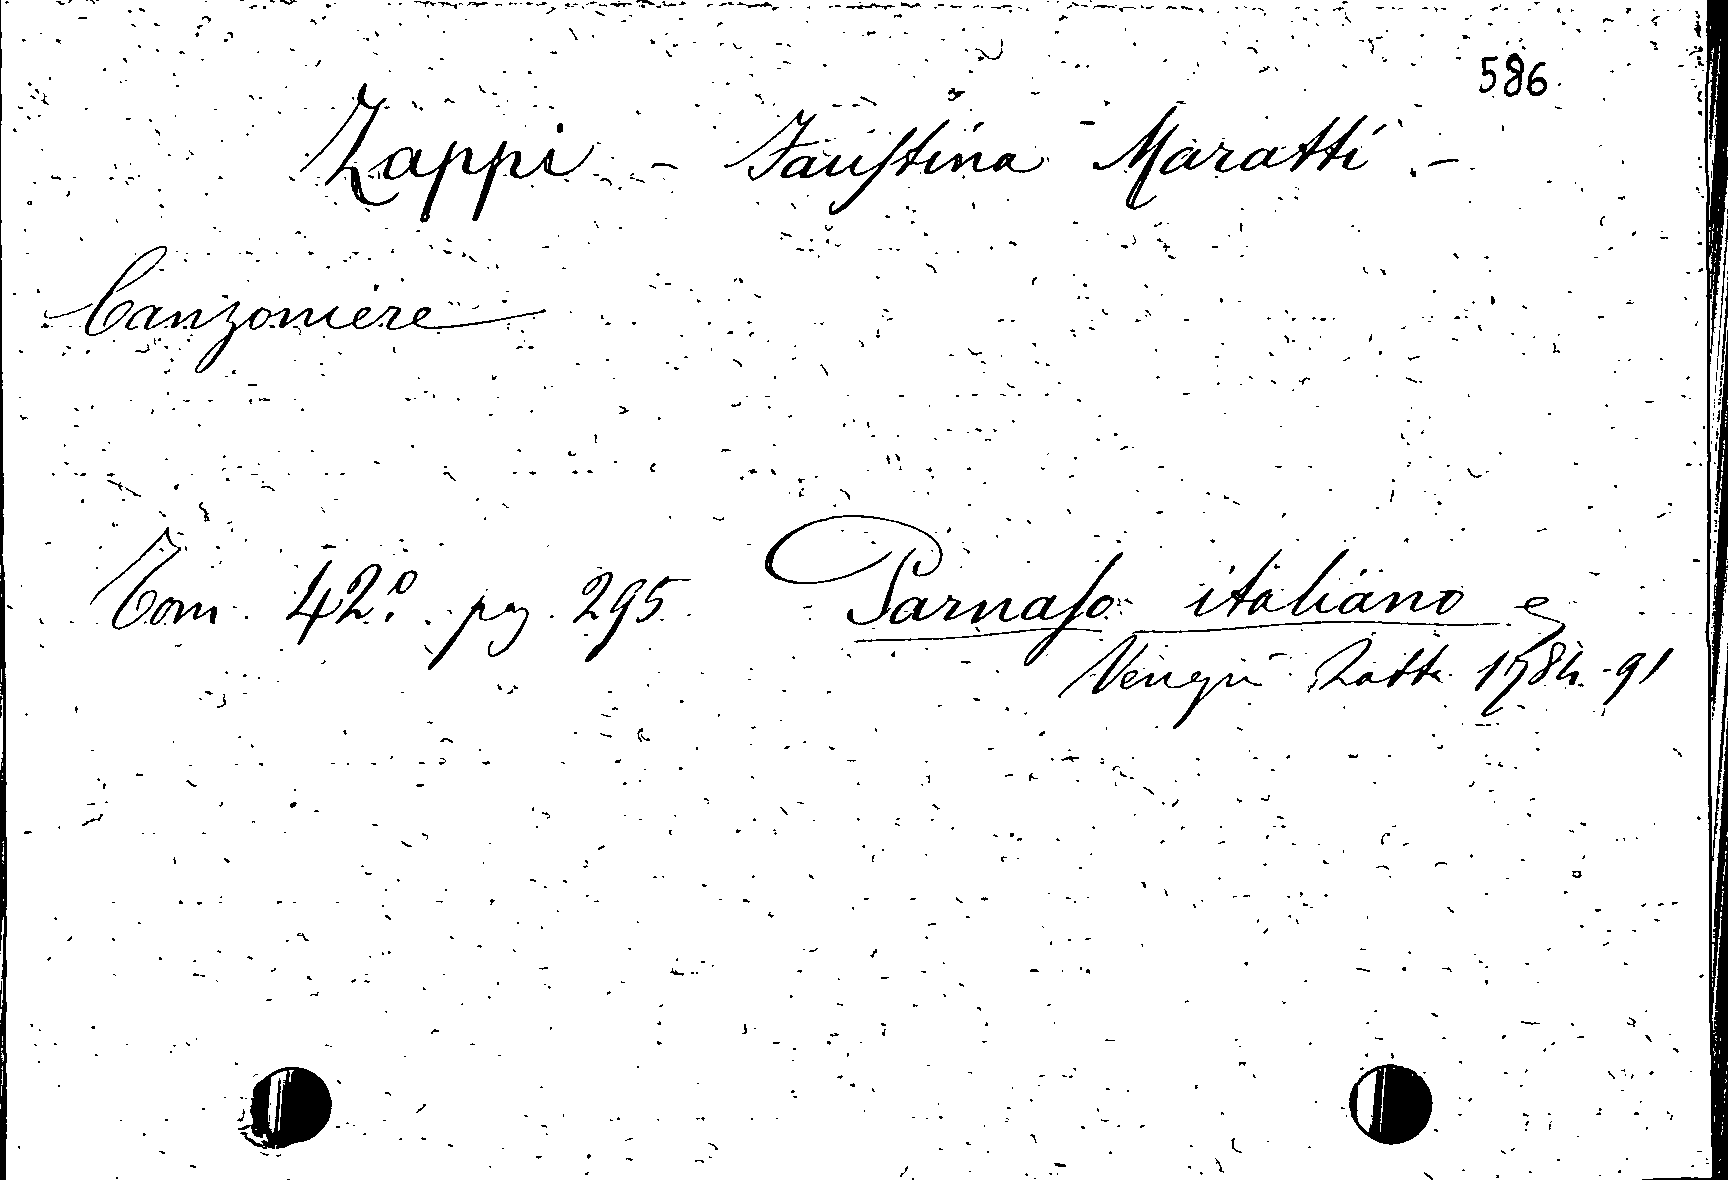 586
Zappi - Faustina Maratti -
Canzoniere
Tom. 42º. pag. 295 Parnaso italiano
Zatta 1784-91